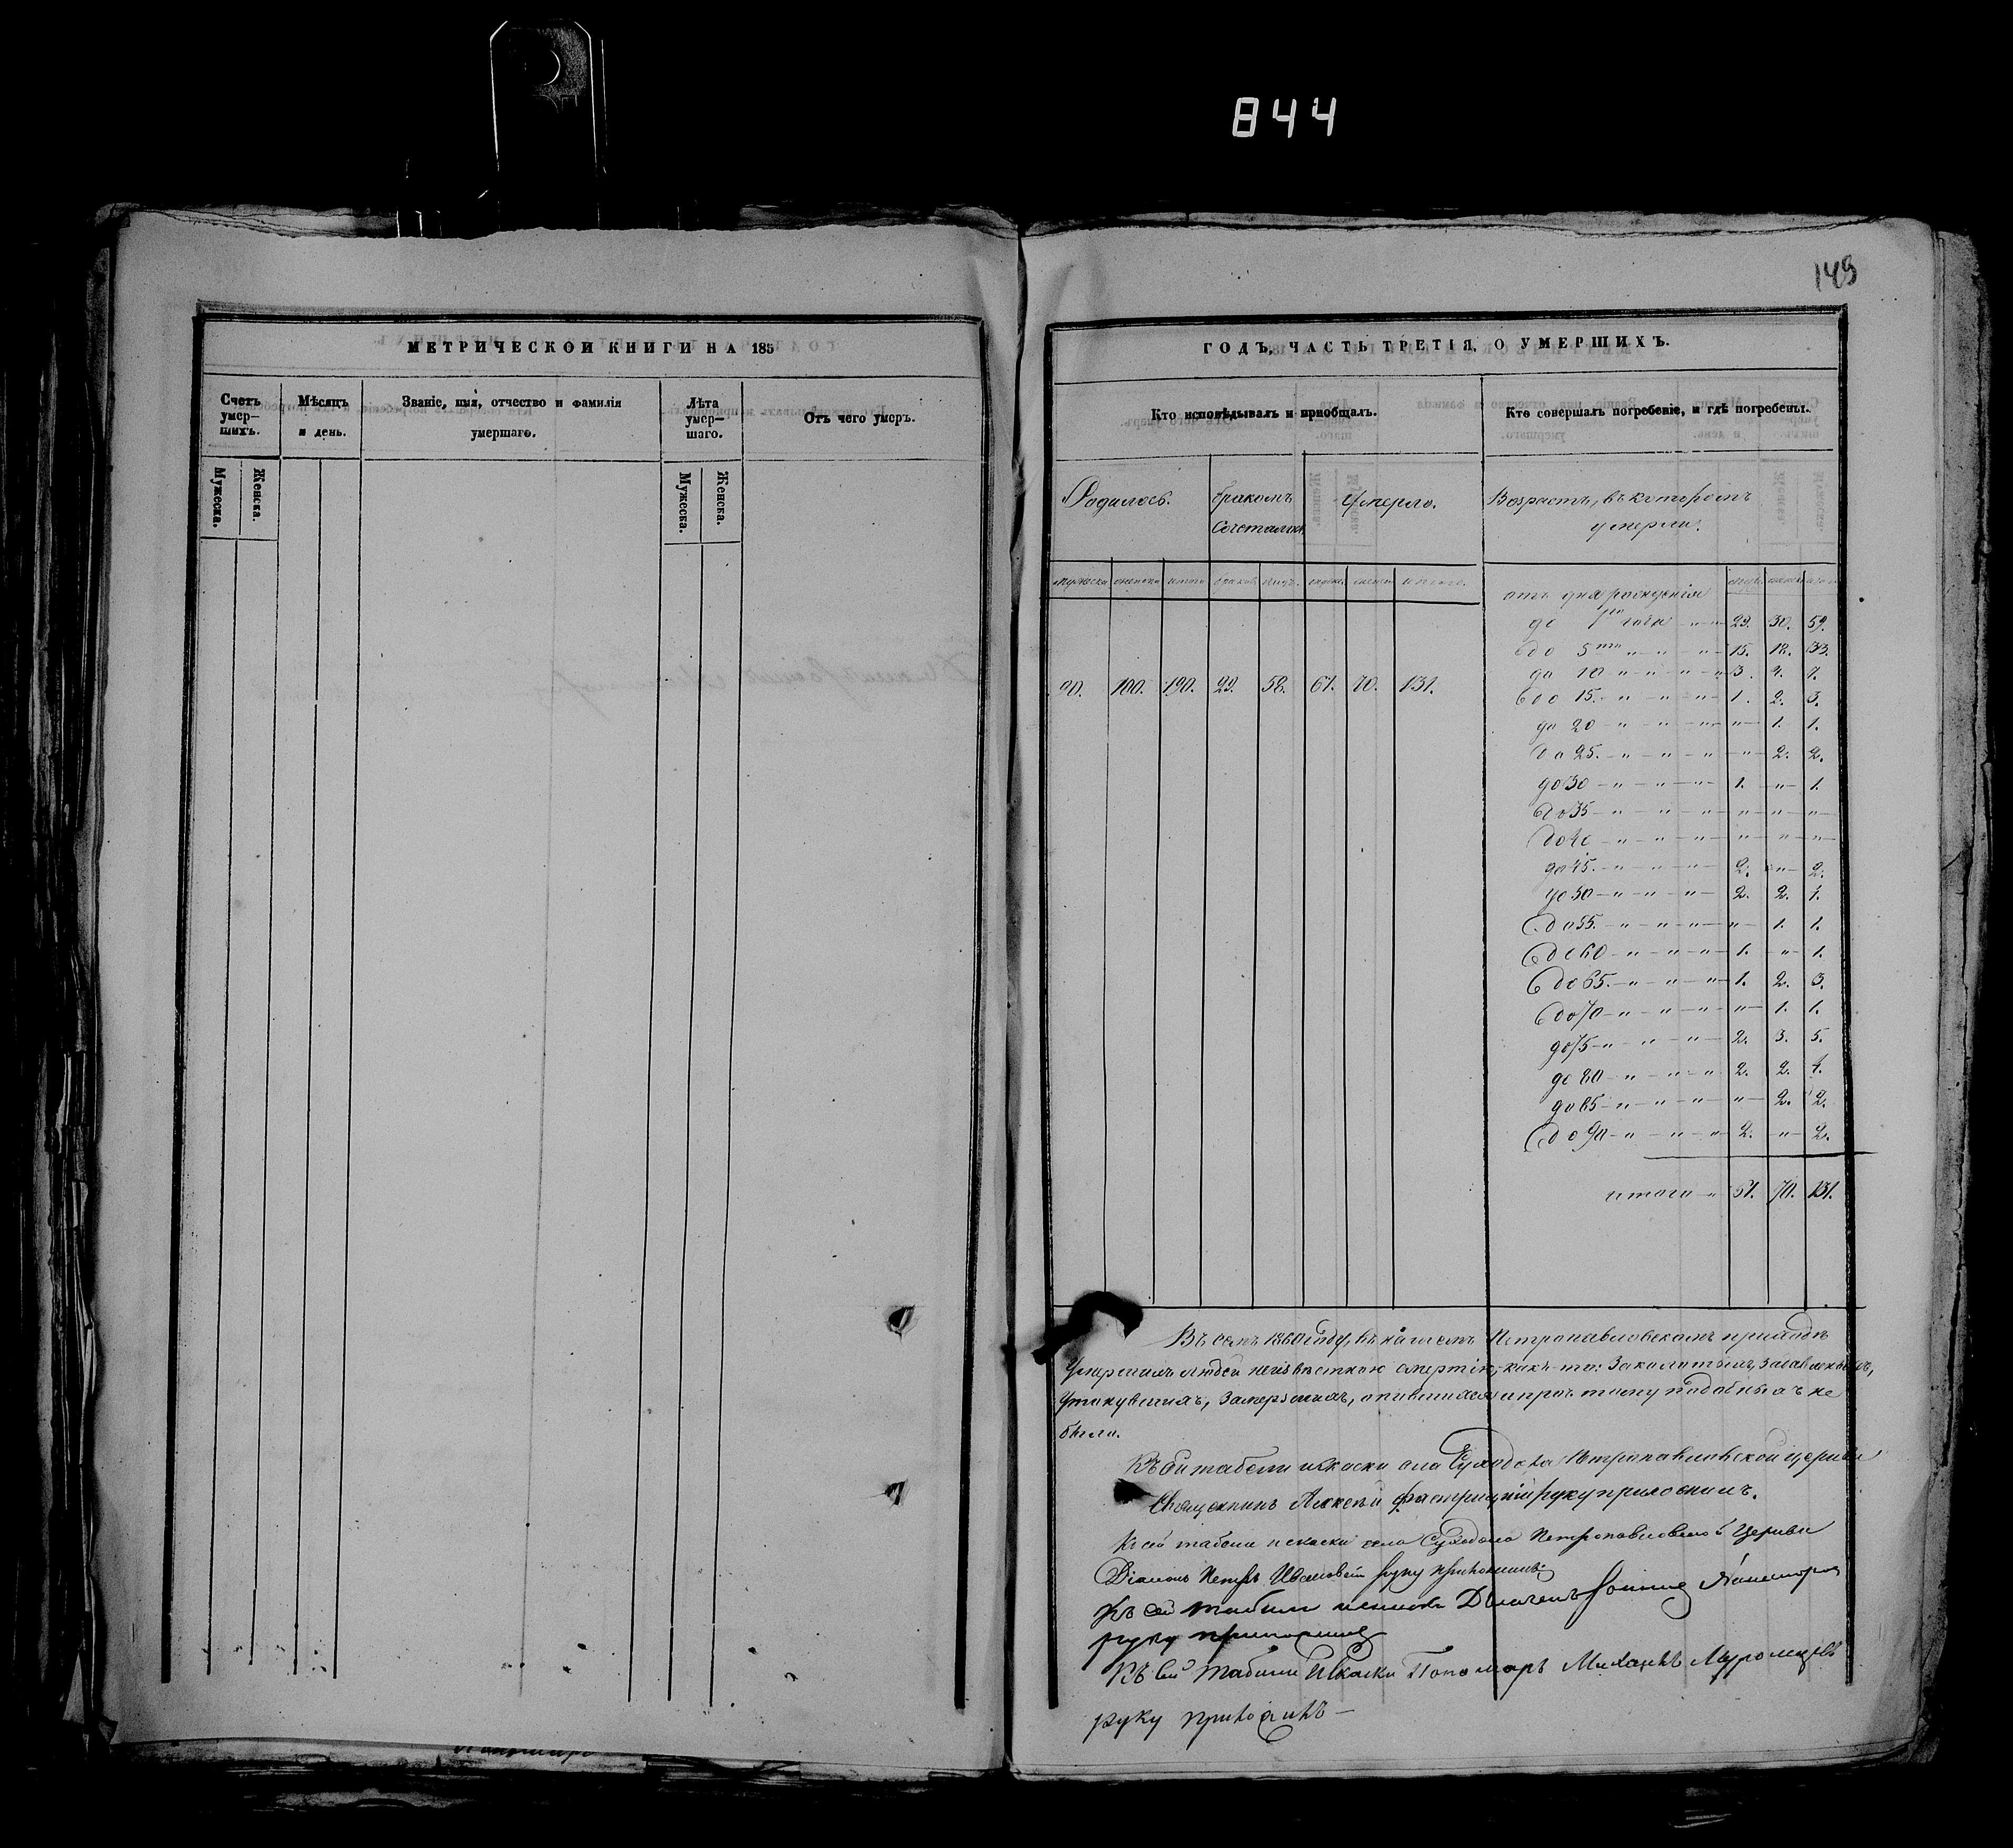 844
149
МЕТРИЧЕСКОЙ КНИГИ НА 185
Счетъ умер-шихъ.
Мѣсяцъ и день.
Званіе, имя, отчество и фамилія умершаго.
Лѣта умер-шаго.
Отъ чего умеръ.
Мужеска.
Женска.
Мужеска.
Женска.
ГОДЪ, ЧАСТЬ ТРЕТІЯ, О УМЕРШИХЪ.
Кто исповѣдывалъ и пріобщалъ.
Кто совершалъ погребеніе, и гдѣ погребены.
Родилось.
бракомъ
Сочеталось
Умерло.
Возрастъ, въ которомъ
умерли.
90. 100. 190. 29. 58. 61. 70. 131.
отъ дня рожденія
до 1го года 29. 30. 59.
до 5ти 15. 18. 33.
до 10 3. 4. 7.
до 15. 1. 2. 3.
до 20 " 1. 1.
до 25. " 2. 2.
до 30 1. " 1.
до 35 " " "
до 40 " " "
до 45. 2. " 2.
до 50 2. 2. 4.
до 55. " 1. 1.
до 60 1. " 1.
до 65. 1. 2. 3.
до 70 " 1. 1.
до 75 2. 3. 5.
до 80 2. 2. 4.
до 85 " 2. 2.
до 90 2. " 2.
итого 61. 70. 131.
Въ семъ 1860 году, въ нашемъ Петропавловскомъ приходѣ
Умершихъ людей неизвѣстною смертію, какъ-то:
утонувшихъ, Замерзшихъ, опившихся и проч. тому подобныхъ не
было.
Къ сей табели и сказки села Суходола Петропавловской церкви
Священникъ Алексѣй руку приложилъ.
Къ сей табели и сказки села Суходола Петропавловской Церкви
Діаконъ Петръ руку приложилъ
Къ сей табели
руку приложилъ
Къ сей табели и Сказки Пономарь Михаилъ Муромцевъ
руку приложилъ